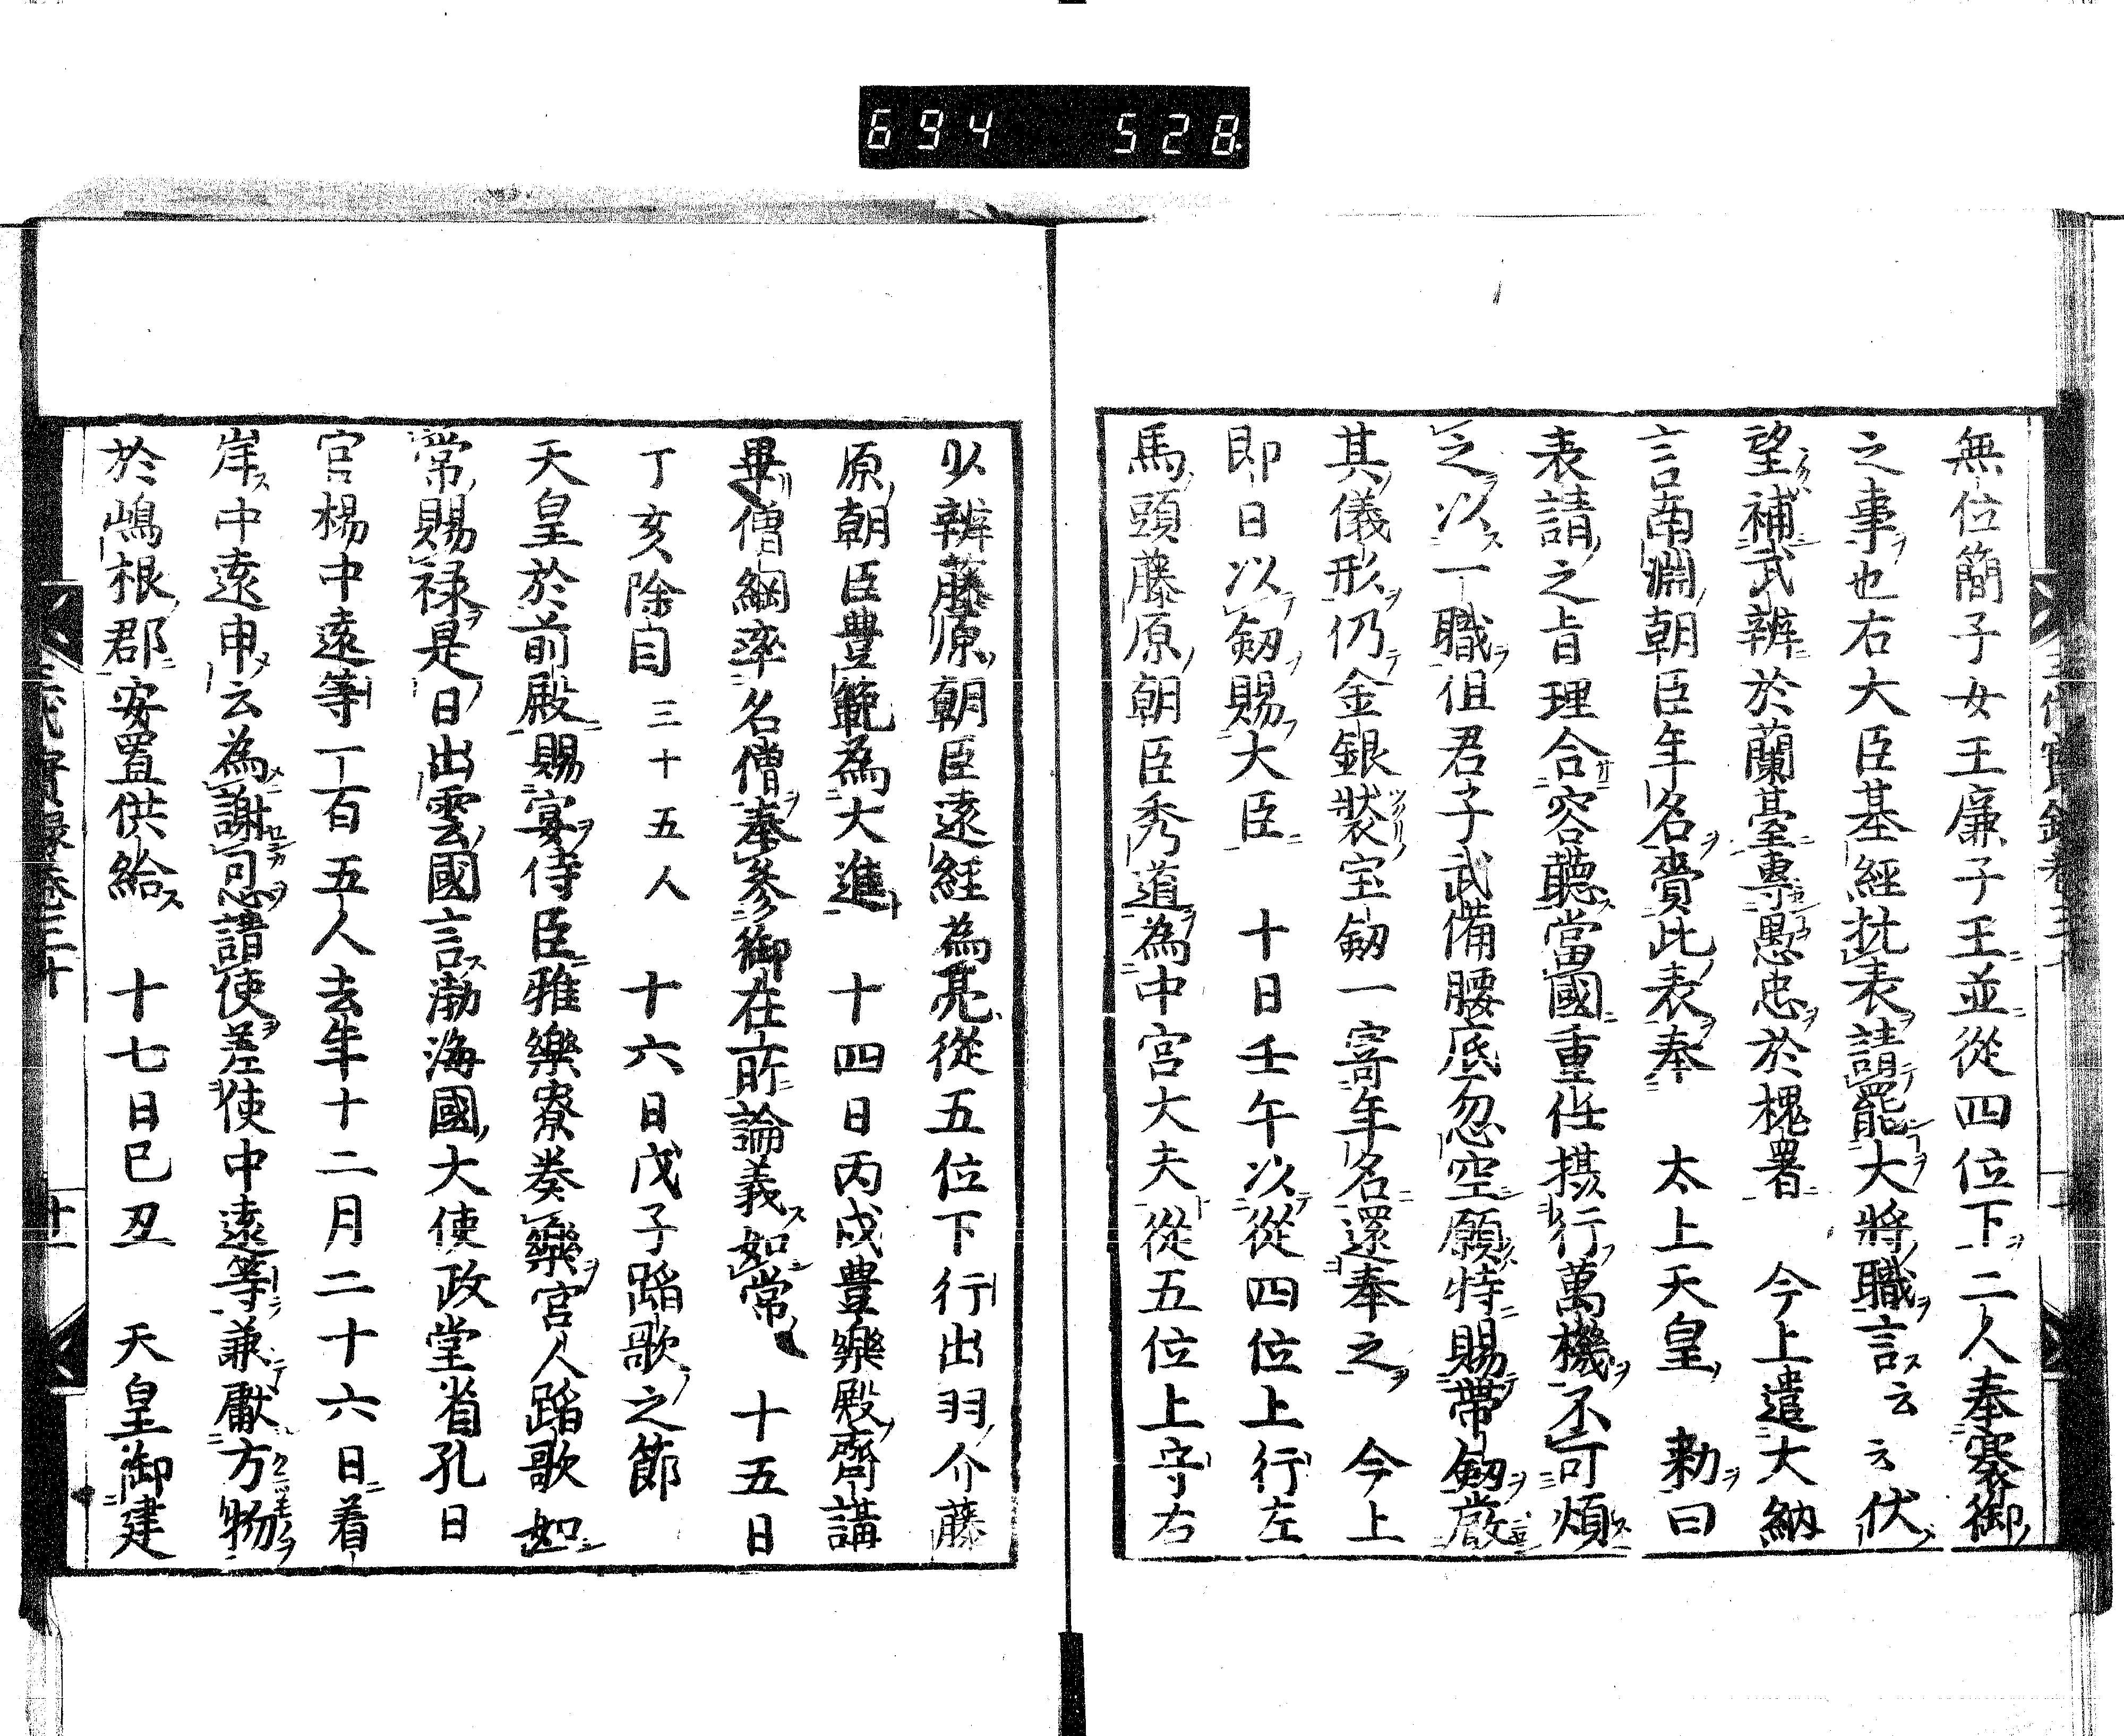 694 528
無位簡子女王廉子王並從四位下二人奉褰御
之事也右大臣基經抗表請罷大將職言云云伏
望補武辨於蘭臺專愚忠於槐署 今上遣大納
言南淵朝臣年名賫此表奉 太上天皇 勅曰
表請之旨理合容聽當國重任摂行萬機不可煩
之以一職但君子武備腰底忽空願特賜帶劔嚴
其儀形仍金銀裝宝劔一寄年名還奉之 今上
即日以劔賜大臣 十日壬午以從四位上行左
馬頭藤原朝臣秀道為中宮大夫從五位上守右
少辨藤原朝臣遠經為亮從五位下行出羽介藤
原朝臣豊範為大進 十四日丙戌豊樂殿齊講
畢僧綱率名僧奉參御在所論義如常 十五日
丁亥除目三十五人 十六日戊子踏歌之節
天皇於前殿賜宴侍臣雅樂寮奏樂宮人踏歌如
常賜禄是日出雲國言渤海國大使政堂省孔目
官楊中遠等一百五人去年十二月二十六日着
岸中遠申云為謝恩請使差使中遠等兼獻方物
於嶋根郡安置供給 十七日巳丑 天皇御建
三代實録卷三十
廿一